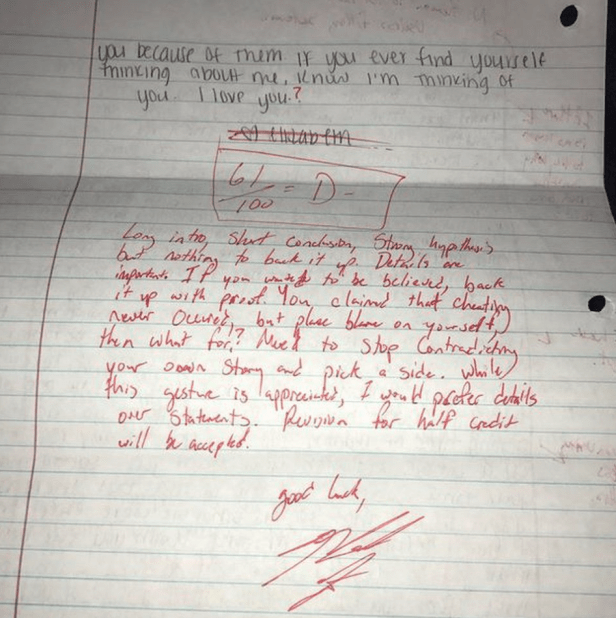 you because of them if you ever find yourself
thinking about me, know I'm thinking of
you. I love you.?
61/100 = D-
Long intro, short conclusion, Strong hypothesis
but nothing to back it up. Details are
important. If you want to be believed, back
it up with proof. You claimed that cheating
never occured, but place blame on yourself,
then what for? Need to stop contradicting
your own story and pick a side. While
this gesture is appreciated, I would prefer details
over statements. Revision for half credit
will be accepted.
good luck,